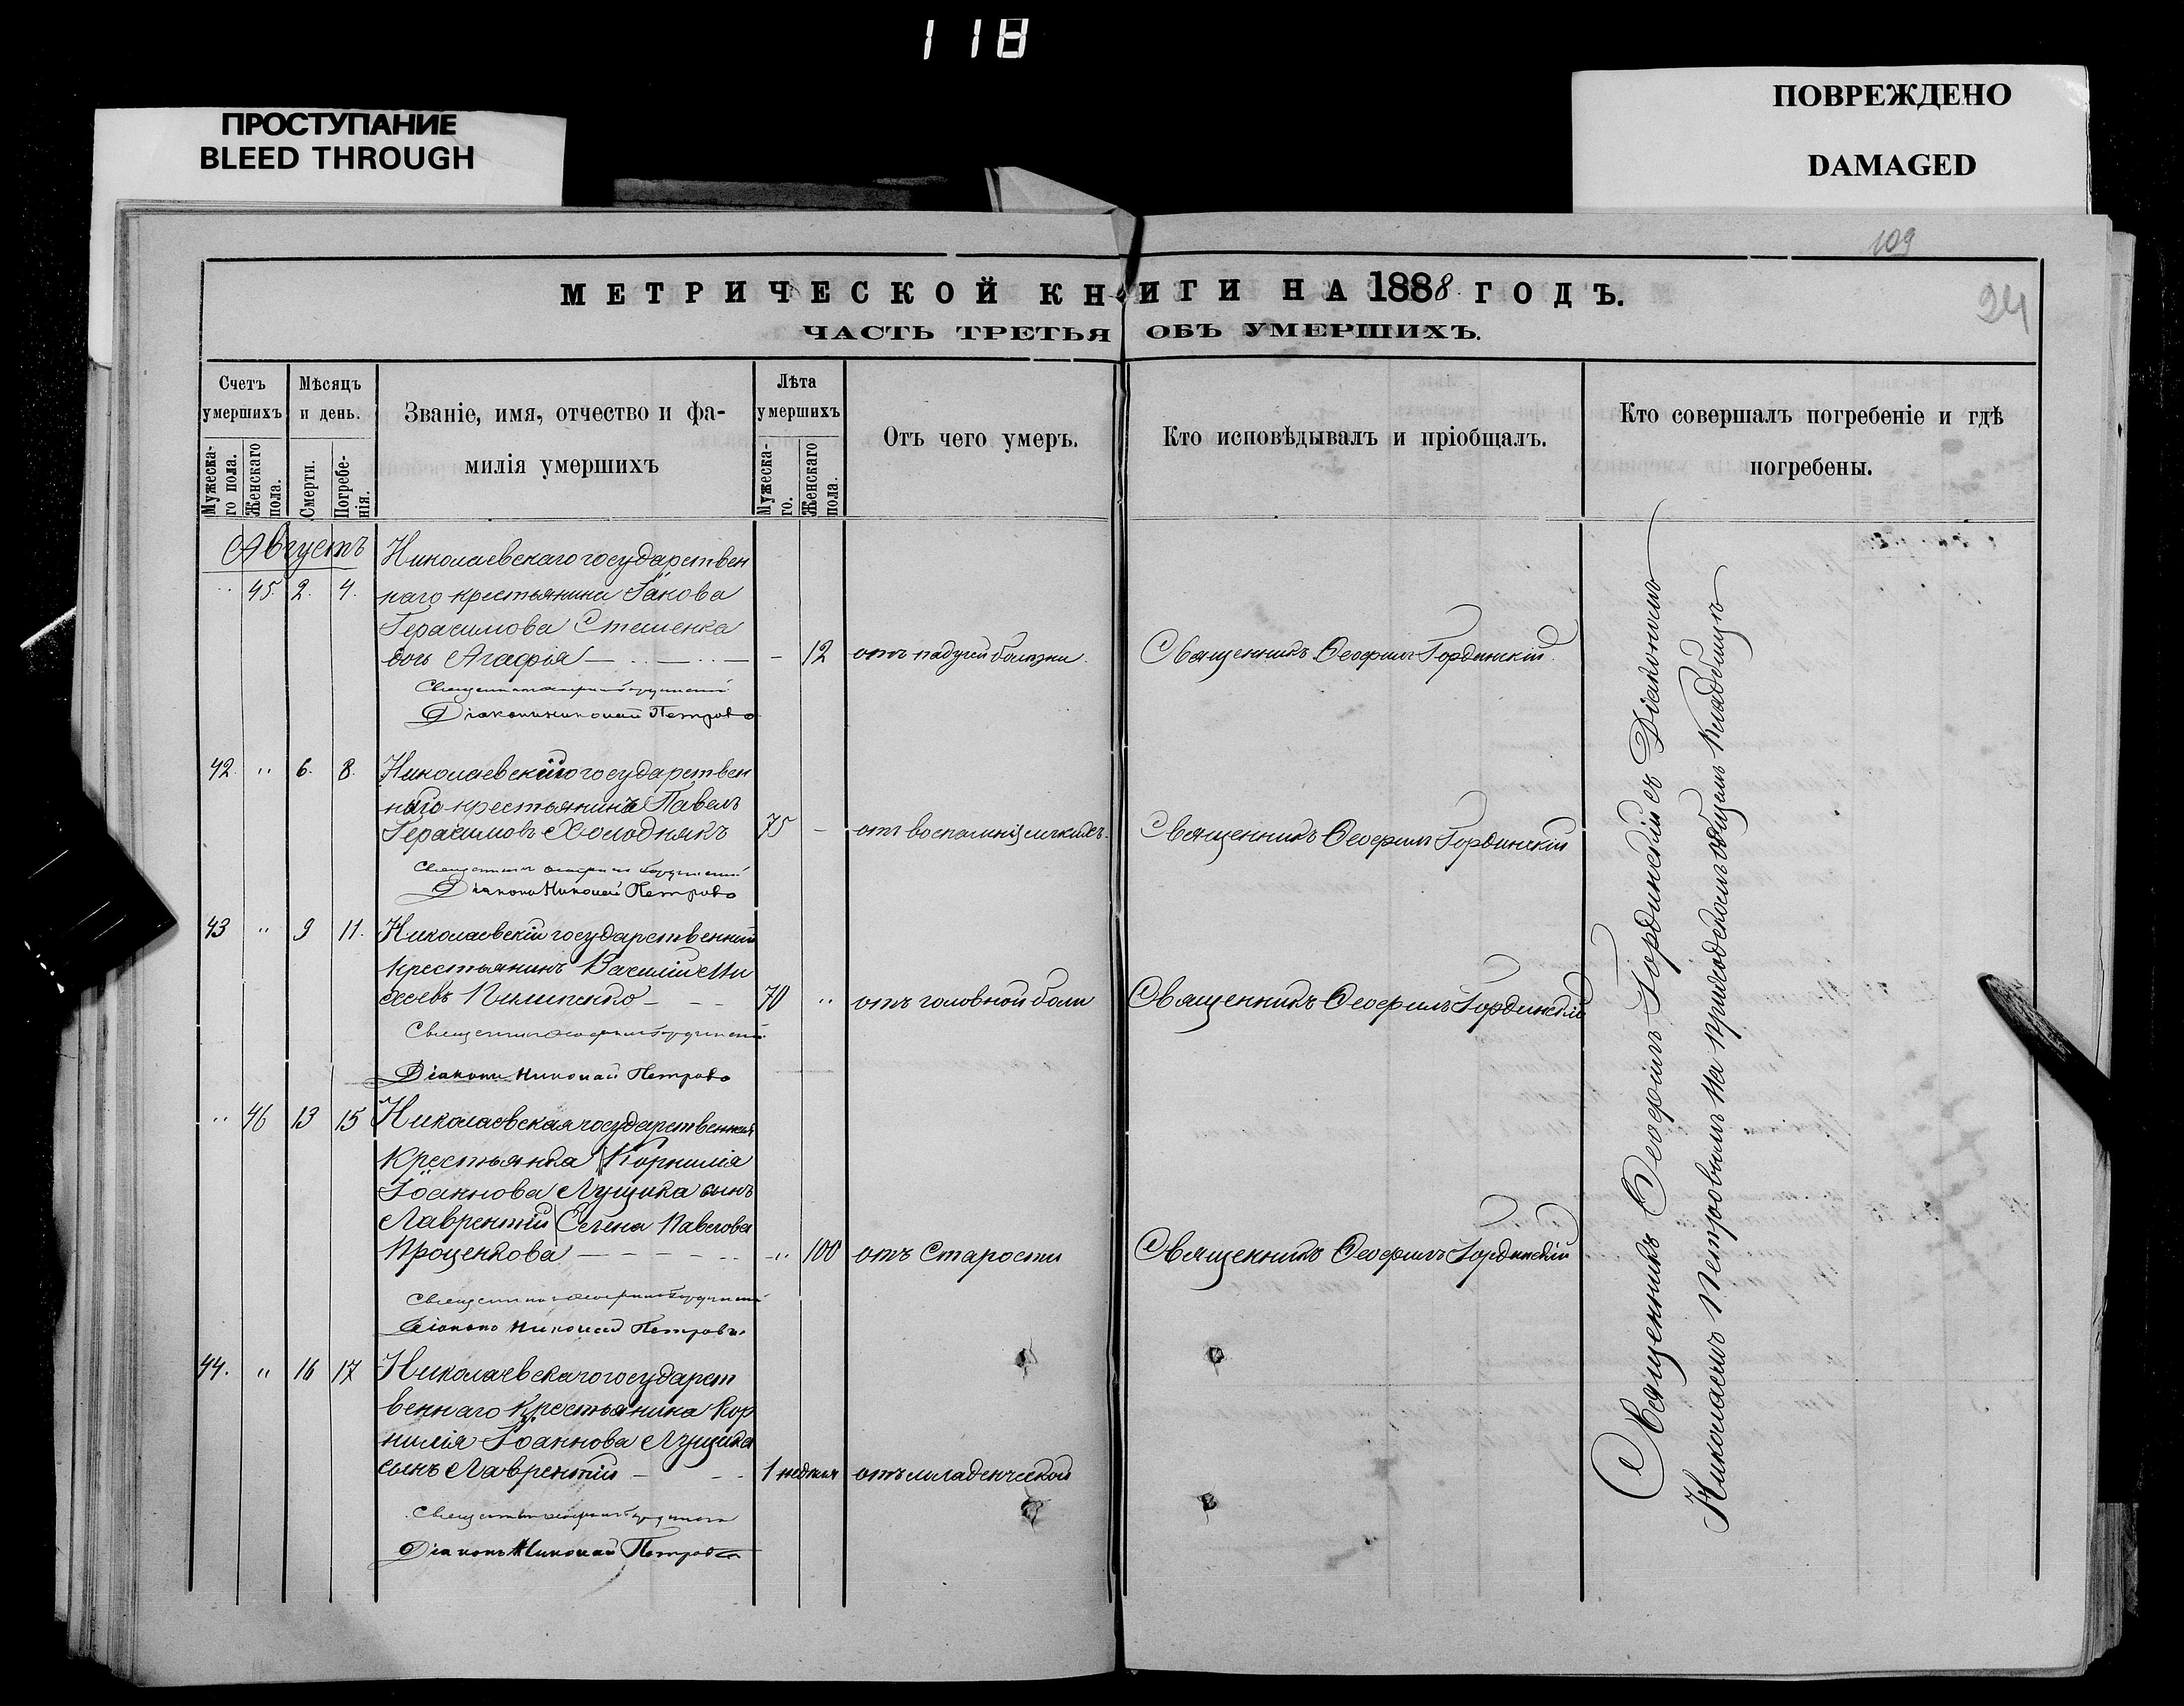 118
ПРОСТУПАНИЕ
BLEED THROUGH
ПОВРЕЖДЕНО
DAMAGED
109
МЕТРИЧЕСКОЙ КНИГИ НА 1888 ГОДЪ.
24
ЧАСТЬ ТРЕТЬЯ ОБЪ УМЕРШИХЪ.
Счетъ умершихъ
Мужеска-го пола.
Женскаго пола.
Мѣсяцъ и день.
Смерти.
Погребе-нія.
Званіе, имя, отчество и фа-
милія умершихъ
Лѣта умершихъ
Мужеска-го.
Женскаго пола.
Отъ чего умеръ.
Кто исповѣдывалъ и пріобщалъ.
Кто совершалъ погребеніе и гдѣ
погребены.
Августъ
Николаевскаго государствен
45. 2. 4. наго крестьянина Іакова
Герасимова Стешенка
дочь Агафія — 12 отъ падучей болезни. Священникъ Ѳеофилъ Гординскій.
Священникъ Ѳеофилъ Гординскій
Діаконъ Николай Петровъ
42. " 6. 8. Николаевскаго государствен
наго крестьянина Павелъ
Герасимовъ Холоднякъ 75 – отъ легкихъ. Священникъ Ѳеофилъ Гординскій
Священникъ Ѳеофилъ Гординскій
Діаконъ Николай Петровъ
43 " 9 11. Николаевскій государственный
крестьянинъ Василій Ми
хеевъ Пилипенко – – – 70 " отъ головной боли Священникъ Ѳеофилъ Гординскій
Священникъ Ѳеофилъ Гординскій
Діаконъ Николай Петровъ
" 46 13 15 Николаевская государственная
крестьянка (Корнилія
Іоаннова Лущика сынъ
Лаврентій) Елена Павлова
Проценкова – – – – – " 100 отъ Старости Священникъ Ѳеофилъ Гординскій
Священникъ Ѳеофилъ Гординскій
Діаконъ Николай Петровъ
44. " 16 17 Николаевскаго государст
веннаго крестьянина Кор
нилія Іоаннова Лущика
сынъ Лаврентій – – 1 недѣли отъ младенческой
Священникъ Ѳеофилъ Гординскій
Діаконъ Николай Петровъ
Священникъ Ѳеофилъ Гординскій съ Діакономъ
Николаемъ Петровымъ на приходскомъ общемъ кладбищѣ